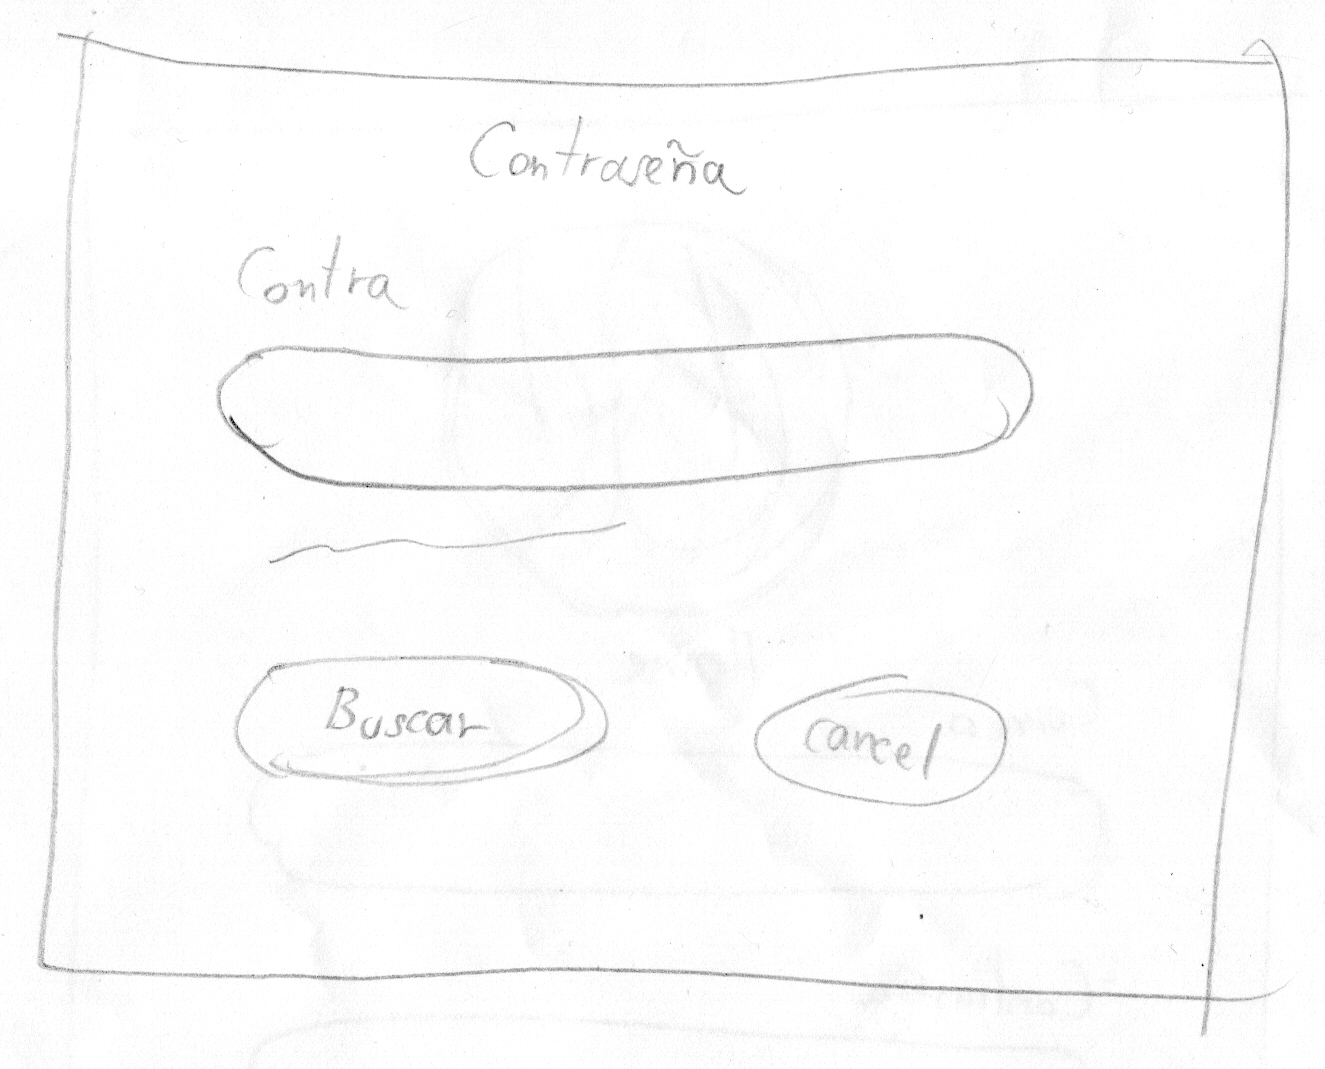 Contraseña
Contra
Buscar
cancel